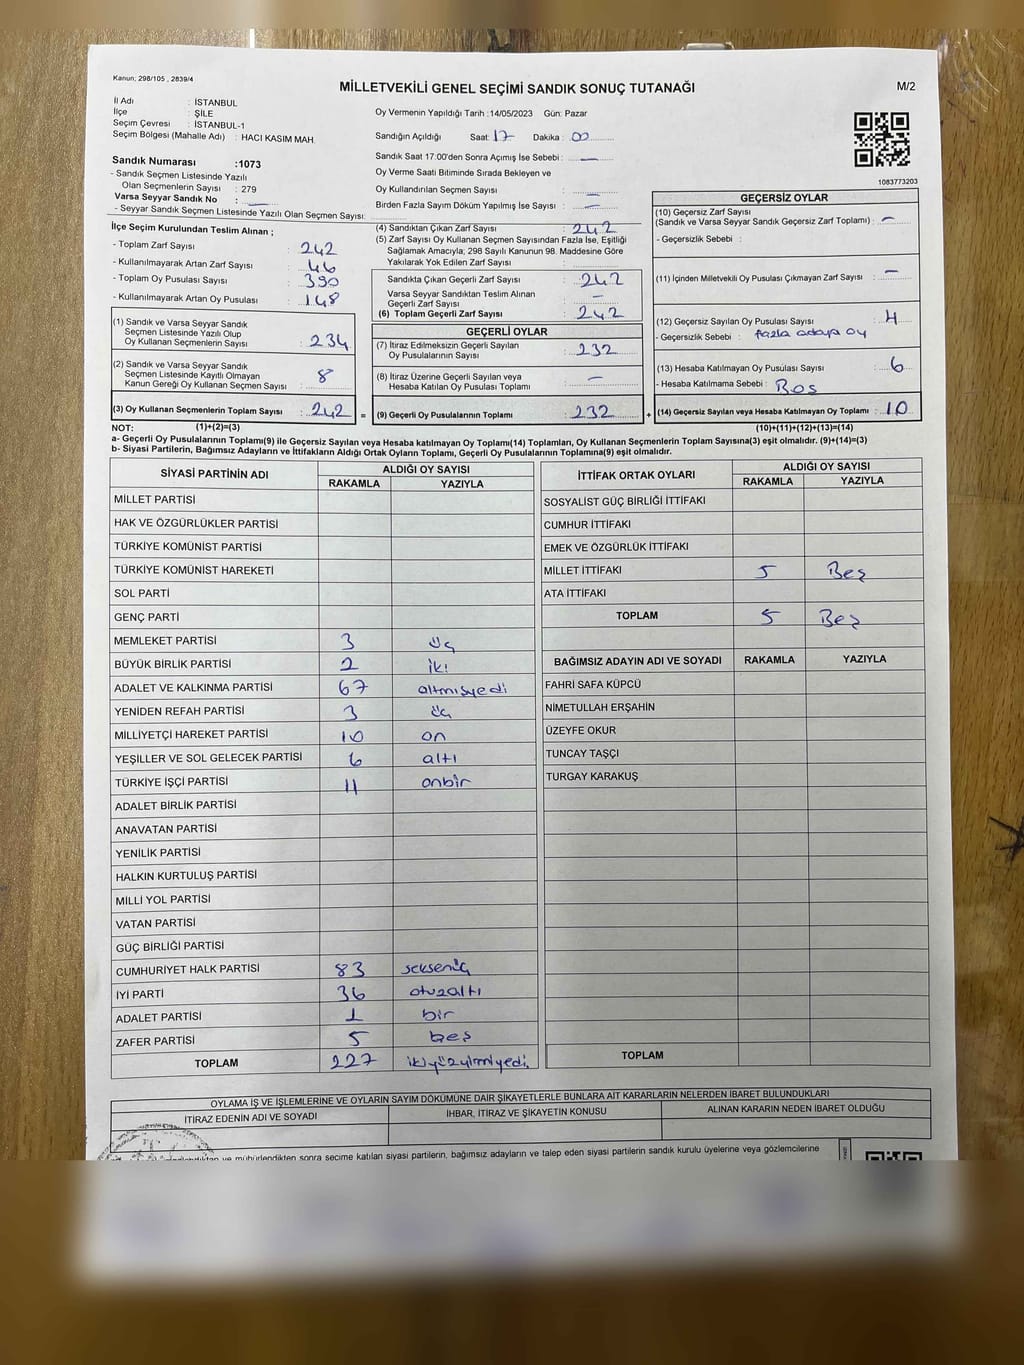 Kanun; 298/105 , 2839/4
MİLLETVEKİLİ GENEL SEÇİMİ SANDIK SONUÇ TUTANAĞI
M/2
İl Adı : İSTANBUL
İlçe : ŞİLE
Seçim Çevresi : İSTANBUL-1
Seçim Bölgesi (Mahalle Adı) : HACI KASIM MAH.
Oy Vermenin Yapıldığı Tarih :14/05/2023 Gün: Pazar
Sandığın Açıldığı Saat: 17 Dakika : 00
Sandık Saat 17:00'den Sonra Açımış İse Sebebi : —
Oy Verme Saati Bitiminde Sırada Bekleyen ve
Oy Kullandırılan Seçmen Sayısı : —
Birden Fazla Sayım Döküm Yapılmış İse Sayısı : —
1083773203
Sandık Numarası :1073
- Sandık Seçmen Listesinde Yazılı
Olan Seçmenlerin Sayısı : 279
Varsa Seyyar Sandık No : —
- Seyyar Sandık Seçmen Listesinde Yazılı Olan Seçmen Sayısı:
İlçe Seçim Kurulundan Teslim Alınan ;
- Toplam Zarf Sayısı : 242
- Kullanılmayarak Artan Zarf Sayısı : 46
- Toplam Oy Pusulası Sayısı : 390
- Kullanılmayarak Artan Oy Pusulası : 148
(1) Sandık ve Varsa Seyyar Sandık
Seçmen Listesinde Yazılı Olup
Oy Kullanan Seçmenlerin Sayısı : 234
(2) Sandık ve Varsa Seyyar
Sandık Seçmen Listesinde Kayıtlı Olmayan
Kanun Gereği Oy Kullanan Seçmen Sayısı : 8
(3) Oy Kullanan Seçmenlerin Toplam Sayısı : 242 =
(4) Sandıktan Çıkan Zarf Sayısı : 242
(5) Zarf Sayısı Oy Kullanan Seçmen Sayısından Fazla İse, Eşitliği
Sağlamak Amacıyla; 298 Sayılı Kanunun 98. Maddesine Göre
Yakılarak Yok Edilen Zarf Sayısı :
Sandıkta Çıkan Geçerli Zarf Sayısı : 242
Varsa Seyyar Sandıktan Teslim Alınan
Geçerli Zarf Sayısı : —
(6) Toplam Geçerli Zarf Sayısı : 242
GEÇERLİ OYLAR
(7) İtiraz Edilmeksizin Geçerli Sayılan
Oy Pusulalarının Sayısı : 232
(8) İtiraz Üzerine Geçerli Sayılan veya
Hesaba Katılan Oy Pusulası Toplamı : —
(9) Geçerli Oy Pusulalarının Toplamı : 232 +
GEÇERSİZ OYLAR
(10) Geçersiz Zarf Sayısı
(Sandık ve Varsa Seyyar Sandık Geçersiz Zarf Toplamı) : —
- Geçersizlik Sebebi :
(11) İçinden Milletvekili Oy Pusulası Çıkmayan Zarf Sayısı : —
(12) Geçersiz Sayılan Oy Pusulası Sayısı : 4
- Geçersizlik Sebebi : fazla adaya oy
(13) Hesaba Katılmayan Oy Pusulası Sayısı : 6
- Hesaba Katılmama Sebebi : Boş
(14) Geçersiz Sayılan veya Hesaba Katılmayan Oy Toplamı : 10
NOT: (1)+(2)=(3) (10)+(11)+(12)+(13)=(14)
a- Geçerli Oy Pusulalarının Toplamı(9) ile Geçersiz Sayılan veya Hesaba katılmayan Oy Toplamı(14) Toplamları, Oy Kullanan Seçmenlerin Toplam Sayısına(3) eşit olmalıdır. (9)+(14)=(3)
b- Siyasi Partilerin, Bağımsız Adayların ve İttifakların Aldığı Ortak Oyların Toplamı, Geçerli Oy Pusulalarının Toplamına(9) eşit olmalıdır.
SİYASİ PARTİNİN ADI ALDIĞI OY SAYISI
RAKAMLA YAZIYLA
MİLLET PARTİSİ
HAK VE ÖZGÜRLÜKLER PARTİSİ
TÜRKİYE KOMÜNİST PARTİSİ
TÜRKİYE KOMÜNİST HAREKETİ
SOL PARTİ
GENÇ PARTİ
MEMLEKET PARTİSİ 3 üç
BÜYÜK BİRLİK PARTİSİ 2 iki
ADALET VE KALKINMA PARTİSİ 67 altmışyedi
YENİDEN REFAH PARTİSİ 3 üç
MİLLİYETÇİ HAREKET PARTİSİ 10 on
YEŞİLLER VE SOL GELECEK PARTİSİ 6 altı
TÜRKİYE İŞÇİ PARTİSİ 11 onbir
ADALET BİRLİK PARTİSİ
ANAVATAN PARTİSİ
YENİLİK PARTİSİ
HALKIN KURTULUŞ PARTİSİ
MİLLİ YOL PARTİSİ
VATAN PARTİSİ
GÜÇ BİRLİĞİ PARTİSİ
CUMHURİYET HALK PARTİSİ 83 seksenüç
İYİ PARTİ 36 otuzaltı
ADALET PARTİSİ 1 bir
ZAFER PARTİSİ 5 beş
TOPLAM 227 ikiyüzyirmiyedi
İTTİFAK ORTAK OYLARI ALDIĞI OY SAYISI
RAKAMLA YAZIYLA
SOSYALİST GÜÇ BİRLİĞİ İTTİFAKI
CUMHUR İTTİFAKI
EMEK VE ÖZGÜRLÜK İTTİFAKI
MİLLET İTTİFAKI 5 Beş
ATA İTTİFAKI
TOPLAM 5 Beş
BAĞIMSIZ ADAYIN ADI VE SOYADI RAKAMLA YAZIYLA
FAHRİ SAFA KÜPCÜ
NİMETULLAH ERŞAHİN
ÜZEYFE OKUR
TUNCAY TAŞÇI
TURGAY KARAKUŞ
TOPLAM
OYLAMA İŞ VE İŞLEMLERİNE VE OYLARIN SAYIM DÖKÜMÜNE DAİR ŞİKAYETLERLE BUNLARA AİT KARARLARIN NELERDEN İBARET BULUNDUKLARI
İTİRAZ EDENİN ADI VE SOYADI İHBAR, İTİRAZ VE ŞİKAYETİN KONUSU ALINAN KARARIN NEDEN İBARET OLDUĞU
ve mühürlendikten sonra seçime katılan siyasi partilerin, bağımsız adayların ve talep eden siyasi partilerin sandık kurulu üyelerine veya gözlemcilerine